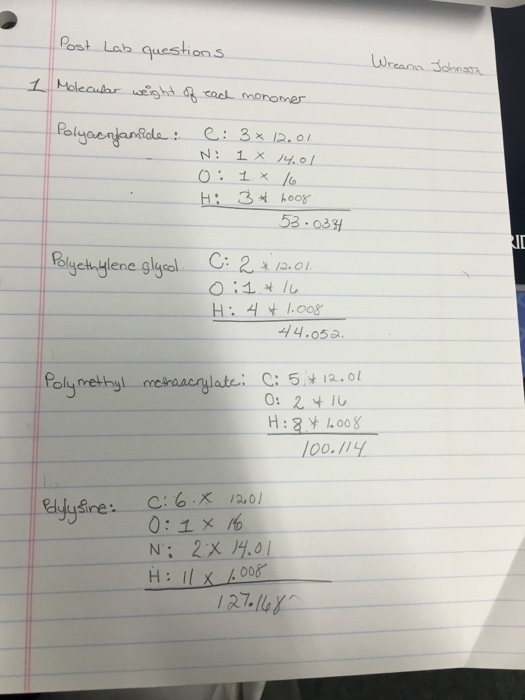 Post Lab questions
Wreann Johnson
1 Molecular weight of each monomer
Polyacrylamide : C: 3 x 12.01
N: 1 x 14.01
O: 1 x 16
H: 3 * 1.008
Polyethylene glycol C: 2 * 12.01
O: 1 * 16
H: 4 * 1.008
44.052
Polymethyl methaacrylate: C: 5 * 12.01
O: 2 * 16
H: 8 * 1.008
100.114
Polylysine: C: 6 x 12.01
O: 1 x 16
N: 2 x 14.01
H: 11 x 1.008
127.168